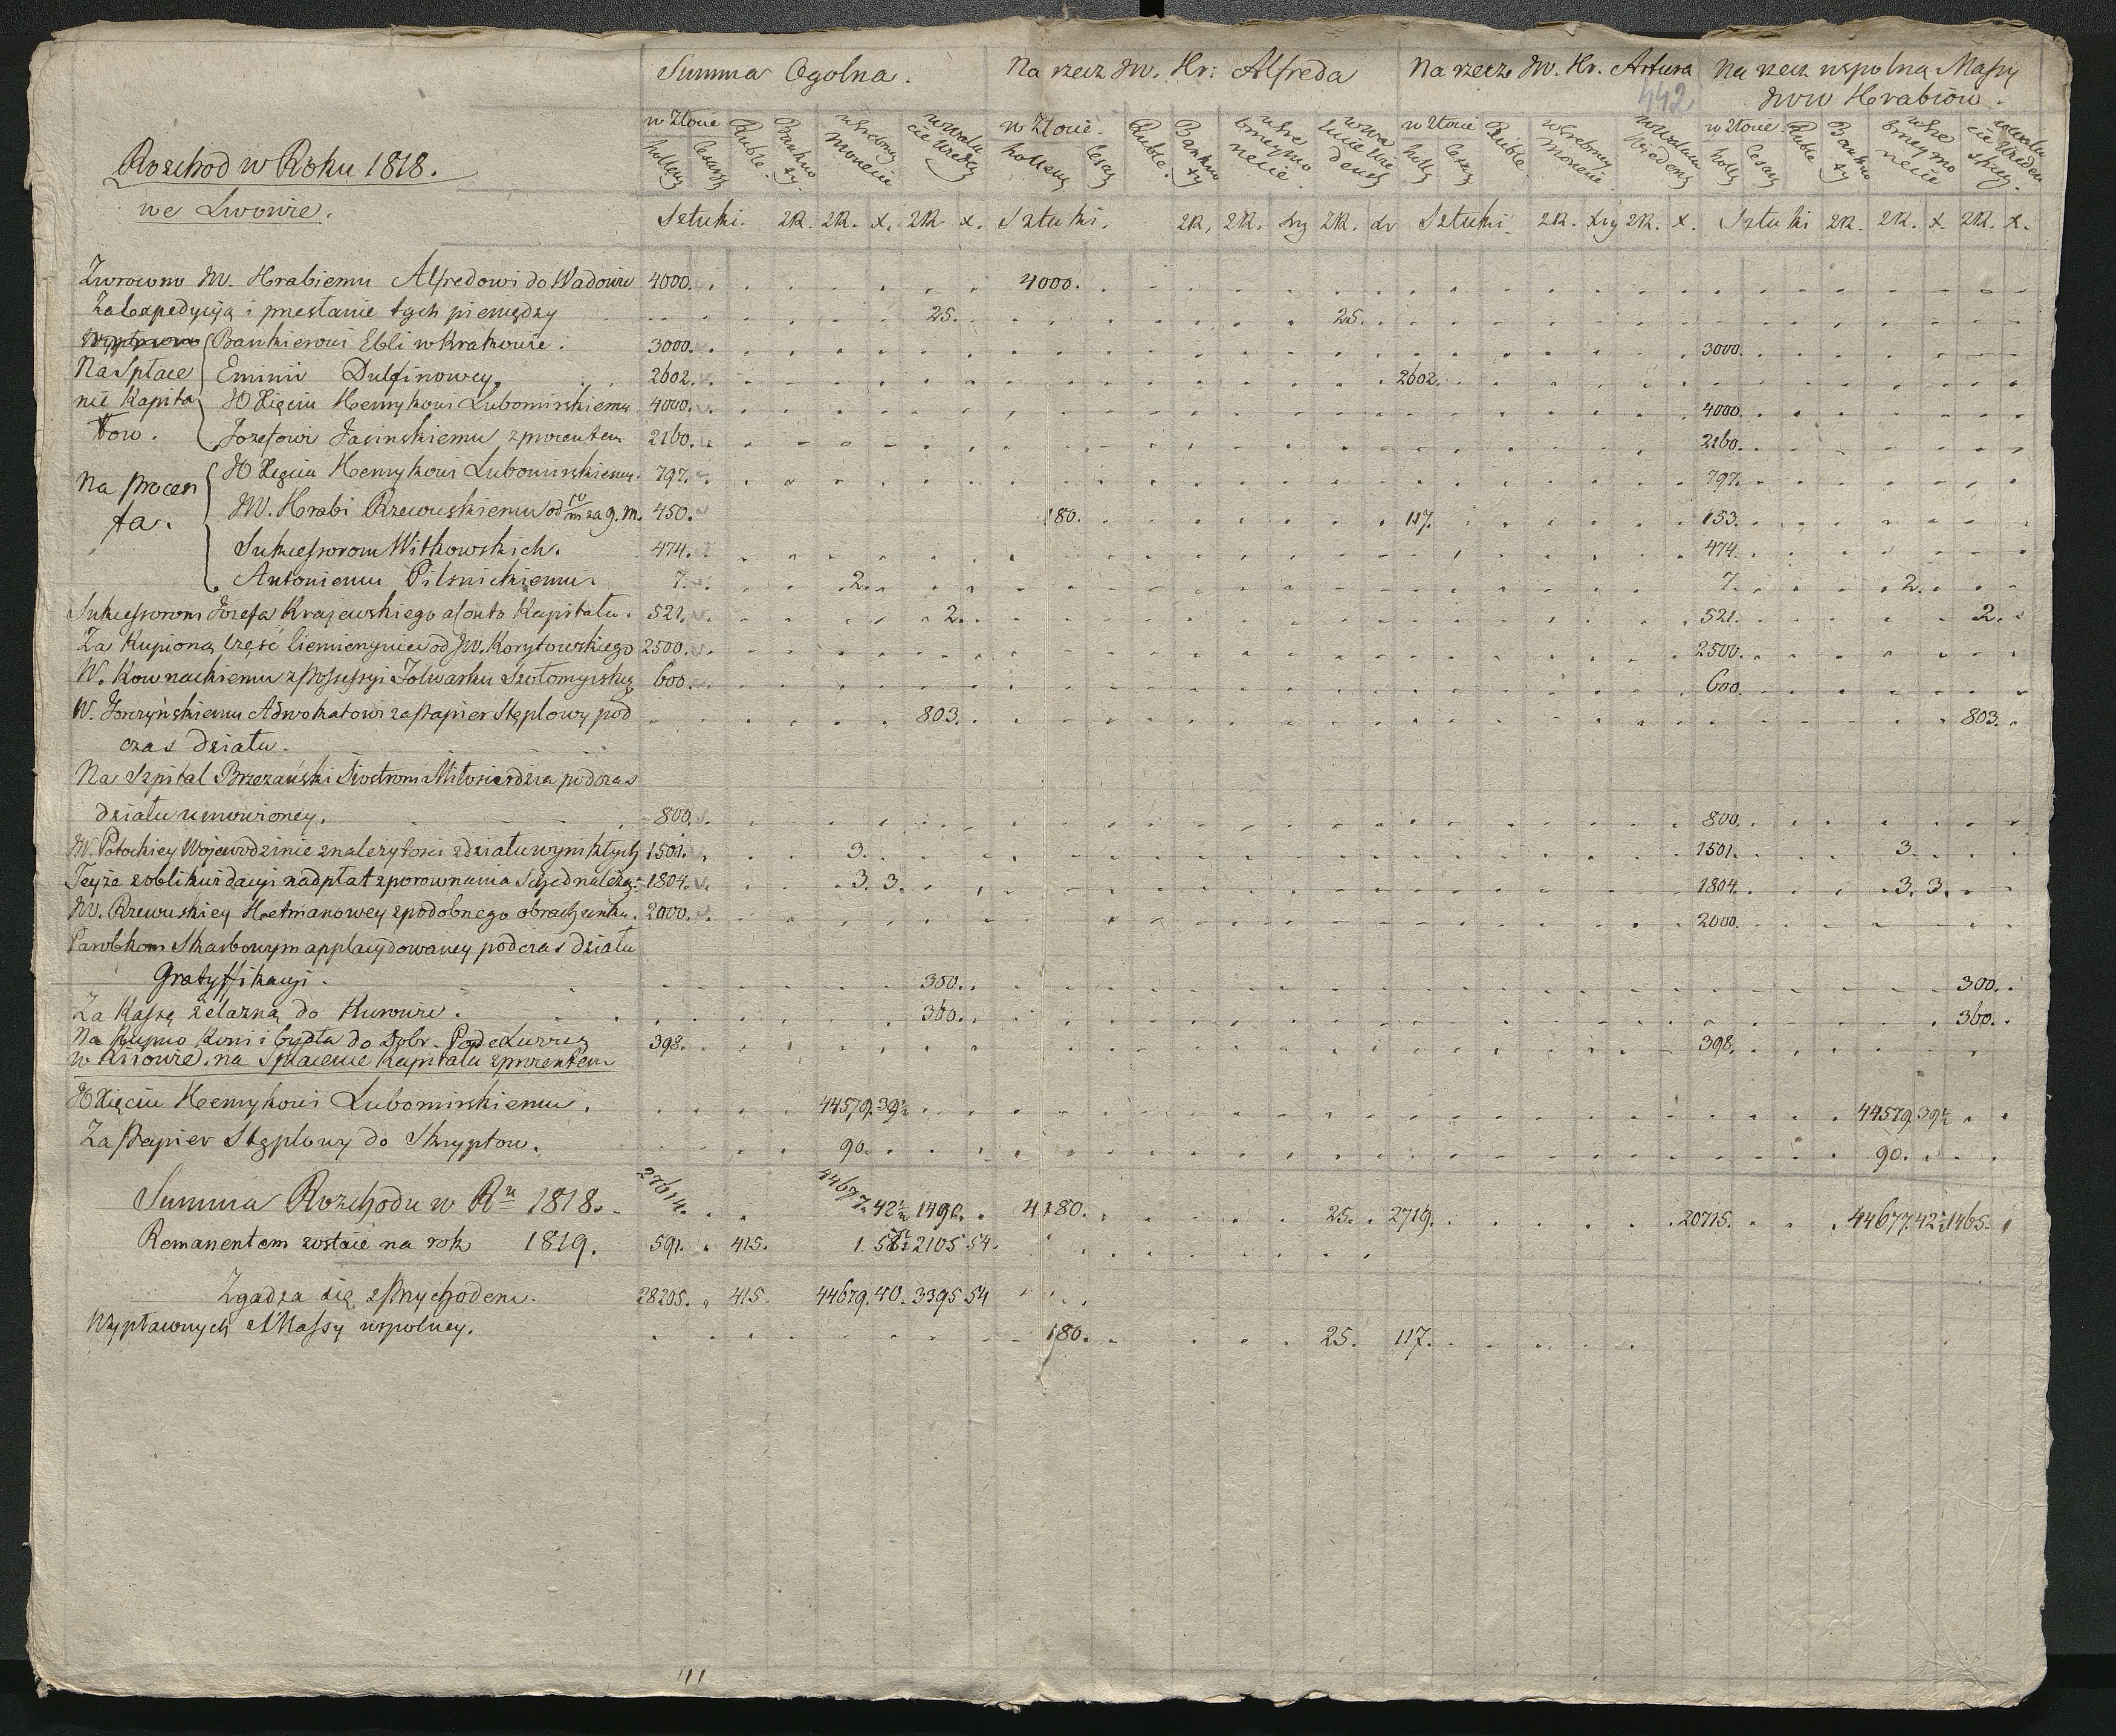 Summa Ogolna. Na rzecz JW. Hr: Alfreda Na rzecz JW. Hr. Artura Na rzecz wspolną Massy
442 JWW Hrabiow.
w Złocie Ruble. Bankno ty. w Srebrney Monecie w Walu cie Wiedeń w Złocie. Ruble. Bankno ty w Sre brney mo necie. w Wa lucie Wie deńs w Złocie Ruble w Srebrney Monecie w Walucie Wiedens w Złocie. Ruble Bankno ty w Sre brney mo necie w Walu cie Wiedeń skiey.
hollen Cesars hollens Cesars holle Cesars holle Cesars
Rozchod w Roku 1818.
we Lwowie.
Sztuki. ZR. ZR. x. ZR x. Sztuki. ZR, ZR. xrg ZR. xr Sztuki. ZR. xrg ZR. x. Sztuki ZR. ZR. x. ZR. x.
Zwrocono JW. Hrabiemu Alfredowi do Wadowic 4000. 4000.
Za Expedycyią i przesłanie tych pieniędzy 25. 25.
Bankierowi Ebli w Krakowie. 3000. 3000.
Na Spłace Eminii Dulfinowey. 2602. 2602.
nie Kapita JO Xięciu Henrykowi Lubomirskiemu 4000. 4000.
łow. Jozefowi Jasinskiemu z procentem 2160. 2160.
Na Procen JO Xięciu Henrykowi Lubomirskiemu. 797. 797.
ta. JW. Hrabi Rzewuskiemu od 10/m za 9. m. 450. 180. 117. 153.
Sukcessorom Witkowskich. 474. 474.
Antoniemu Pilsnickiemu. 7. 2. 7. 2.
Sukcessorom Jozefa Krajewskiego a Conto Kapitału. 521. 2. 521. 2.
Za Kupioną Część Ciemierzyniec od JW. Korytowskiego 2500. 2500.
W. Kownackiemu z Possessyi Folwarku Szołomyiskę 600. 600.
W. Jorczyńskiemu Adwokatowi za Papier Stęplowy pod 803. 803.
czas działu.
Na Szpital Brzezański Siostrom Miłosierdzia podczas
działu umowioney. 800. 800.
JW. Potockiey Woiewodzinie z należytości z działu wynikłych 1501. 3. 1501. 3.
Teyże z oblikwidacyi nadpłat z porownania Sched należą: 1804. 3. 3. 1804. 3. 3.
JW. Rzewuskiey Hetmanowey z podobnego obrachunku. 2000. 2000.
Parobkom Skarbowym applacydowaney podczas działu
Gratyffikacyi. 300. 300.
Za Kassę żelazną do Kurowic. 360. 360.
Na Kupno Koni i bydła do Dobr. 398. 398.
w Kiiowie. na Spłacenie Kapitału z procentem
JO Xięciu Henrykowi Lubomirskiemu. 44579. 39½ 44579. 39½
Za Papier Stęplowy do Skryptow. 90. 90.
Summa Rozchodu w Ru 1818. 27614. 44677. 42½ 1490. 4180. 25. 2719. 20715. 44677. 42½ 1465.
Remanentem zostaie na rok 1819. 591. 415. 1. 57½ 2105 54.
Zgadza się z Przychodem. 28205. 415. 44679. 40. 3395 54
Wypławnych z Massy wspolney. 180. 25. 117.